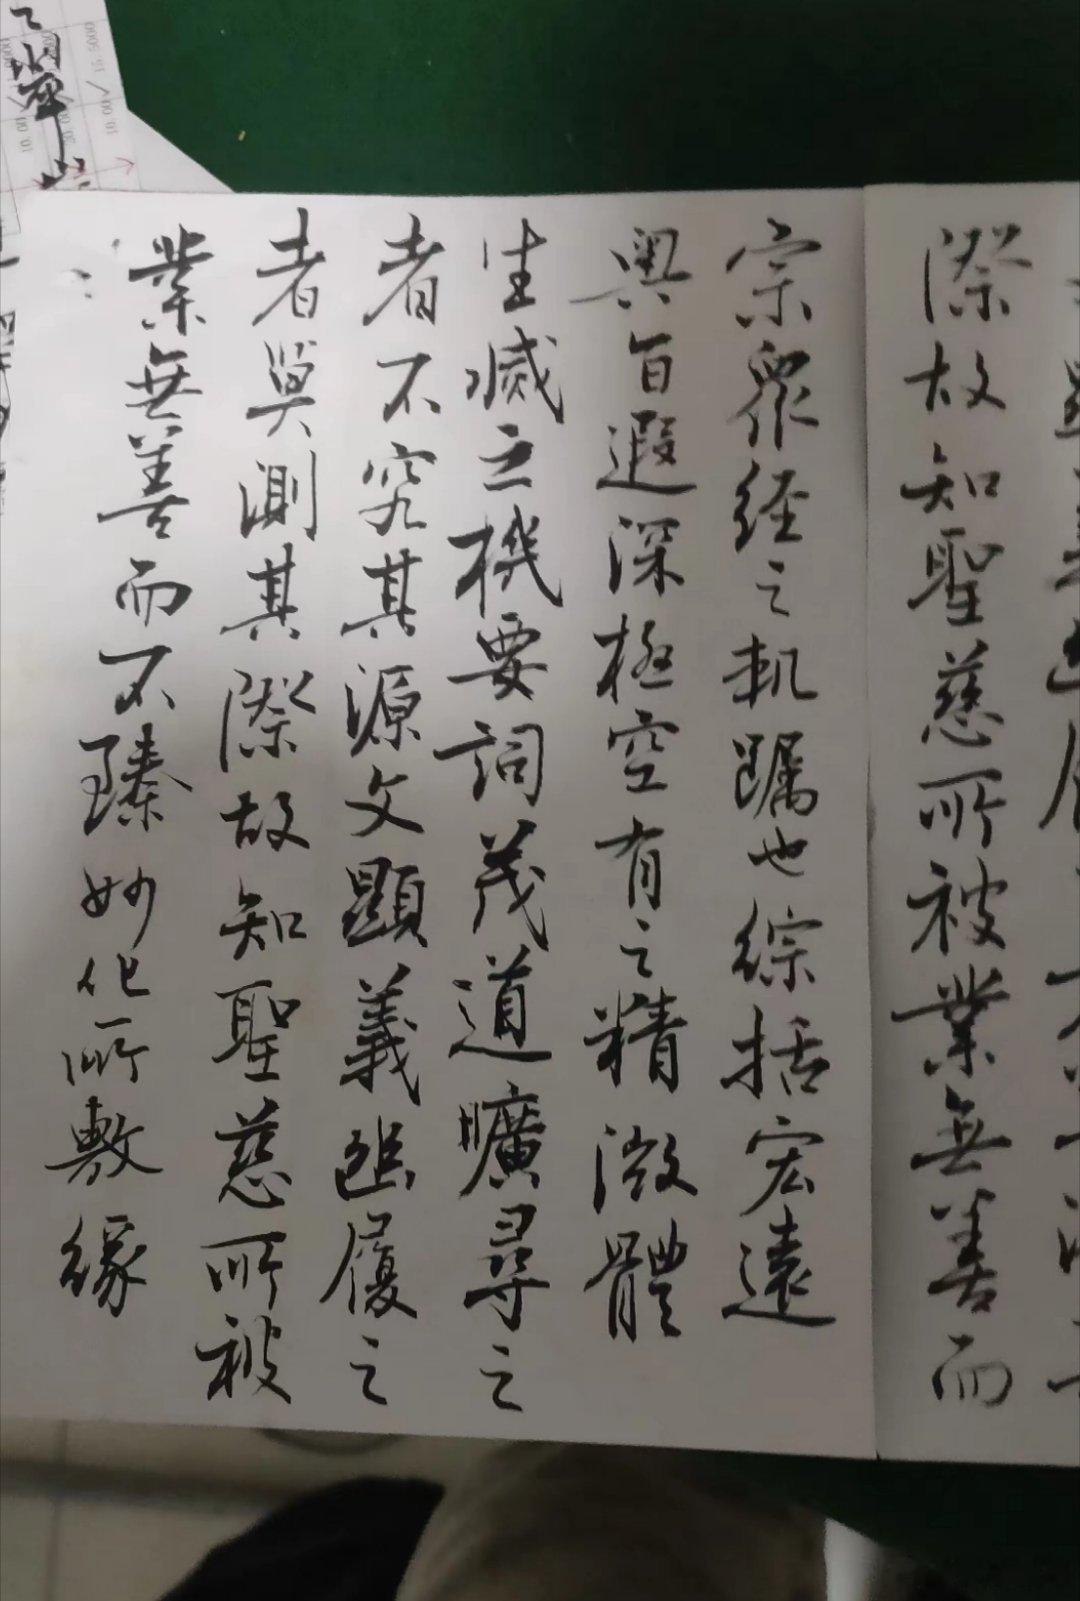 際故知聖慈所被業無善而
宗眾經之軌躅也綜括宏遠
奧旨遐深極空有之精微體
生滅之機要詞茂道曠尋之
者不究其源文顯義幽履之
者莫測其際故知聖慈所被
業無善而不臻妙化所敷緣